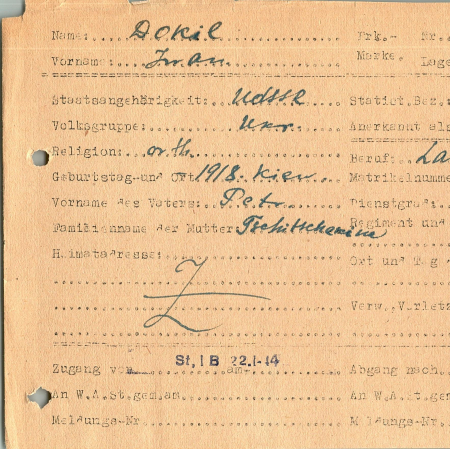 Name: Dokil Frk.- Nr.
Vorname: Iwan Marke. Lage
Staatsangehörigkeit: UdSSR Statist.Bez.
Volksgruppe: Ukr. Anerkannt als
Religion: orth. Beruf: La
Geburtstag und Ort 1918. Kiew Matrikelnumme
Vorname des Vaters: Petr Dienstgrad:
Familienname der Mutter: Regiment und
Heimatadresse: Ort und Tag
Verw., Verletz
St, I B 22.1.44
Zugang von am Abgang nach
An W.A.St.gem.am An W.A.St.gem
Meldungs-Nr. Meldungs-Nr.